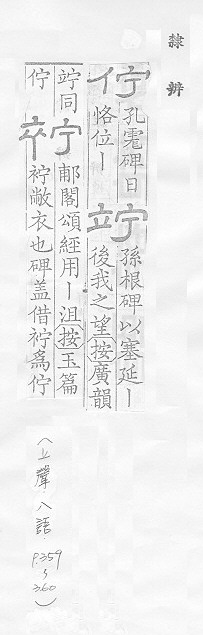 隸辨
佇 孔碑日
恪位丨
竚 孫根碑以塞延丨
後我之望按廣韻
竚同
佇
郙閣頌經用丨沮按玉篇
敝衣也碑盖借爲佇
(上聲.八語. P.359
~
360)